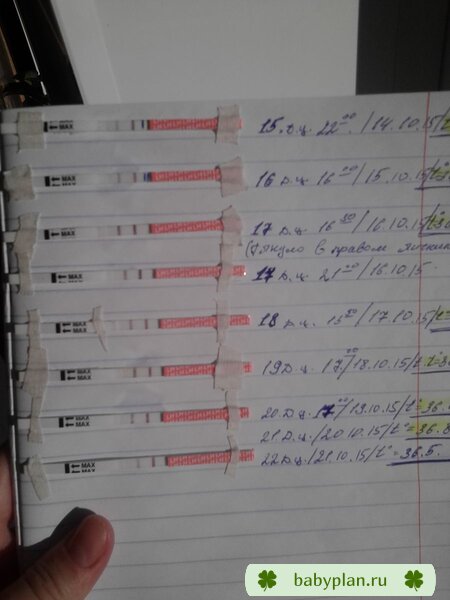 MAX 15 д.ц. 22 00 /14.10.15/
MAX 16 д.ц. 16 /15.10.15/t°
MAX 17 д.ц. 16 /16.10.15/t°
в правом
MAX 17 д.ц. 21 /16.10.15.
MAX 18 д.ц. /17.10.15/t=
MAX 19 д.ц. 17 00 /18.10.15/t
MAX 20 д.ц. 17 /19.10.15/t°=36.
MAX 21 д.ц. /20.10.15/t°=36.8
MAX 22 д.ц. /21.10.15/t°=36.5.
babyplan.ru